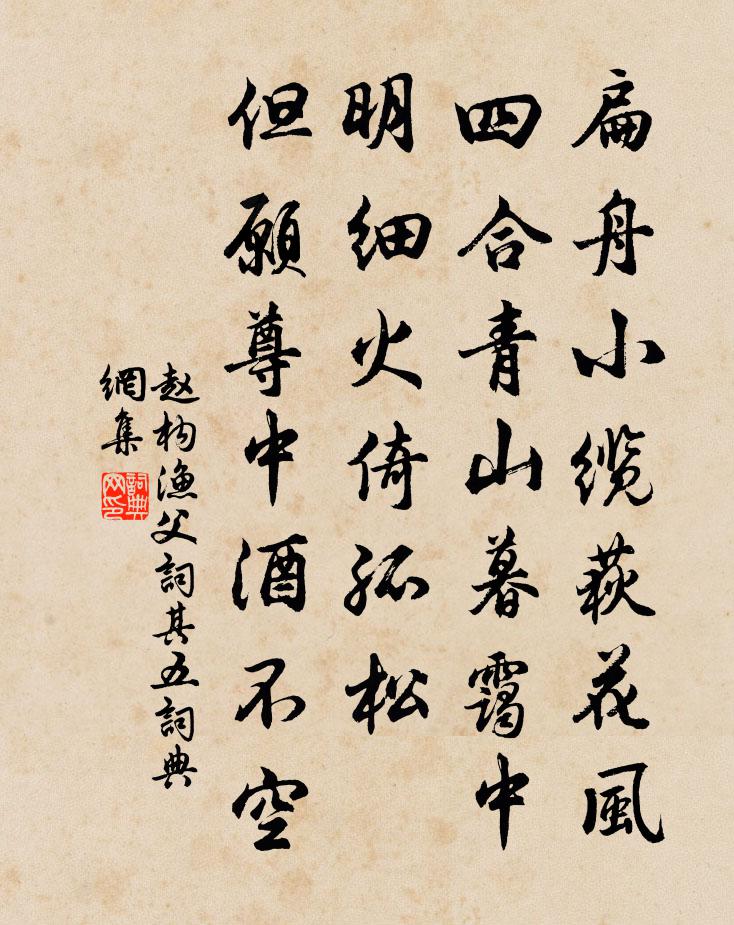 扁舟小缆荻花風
四合青山暮靄中
明細火倚孤松
但願尊中酒不空
赵构漁父詞其五詞典
網集
詞典
网印